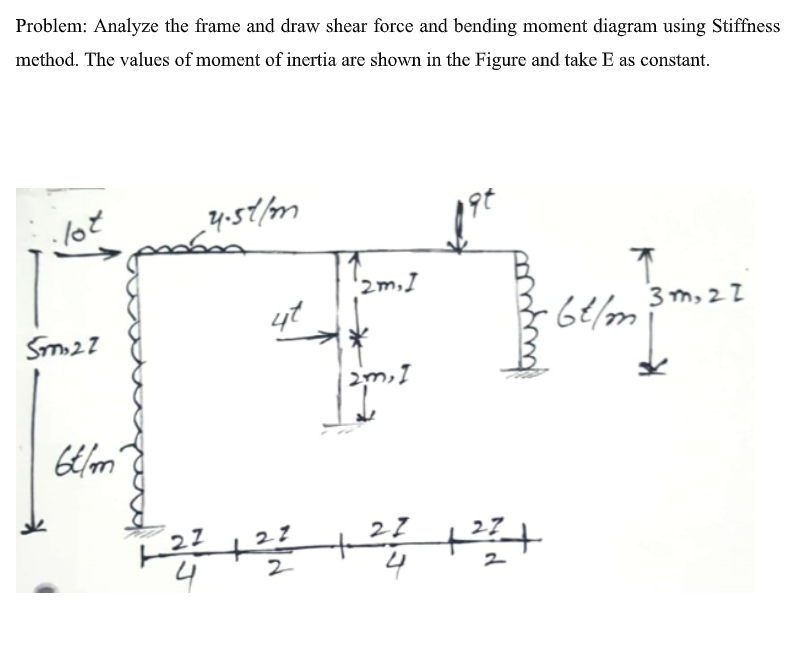 Problem: Analyze the frame and draw shear force and bending moment diagram using Stiffness
method. The values of moment of inertia are shown in the Figure and take E as constant.
10t
4.5t/m
9t
2m, I
3m, 2I
4t
6t/m
5m, 2I
2m, I
6t/m
2I 2I 2I 2I
4 2 4 2